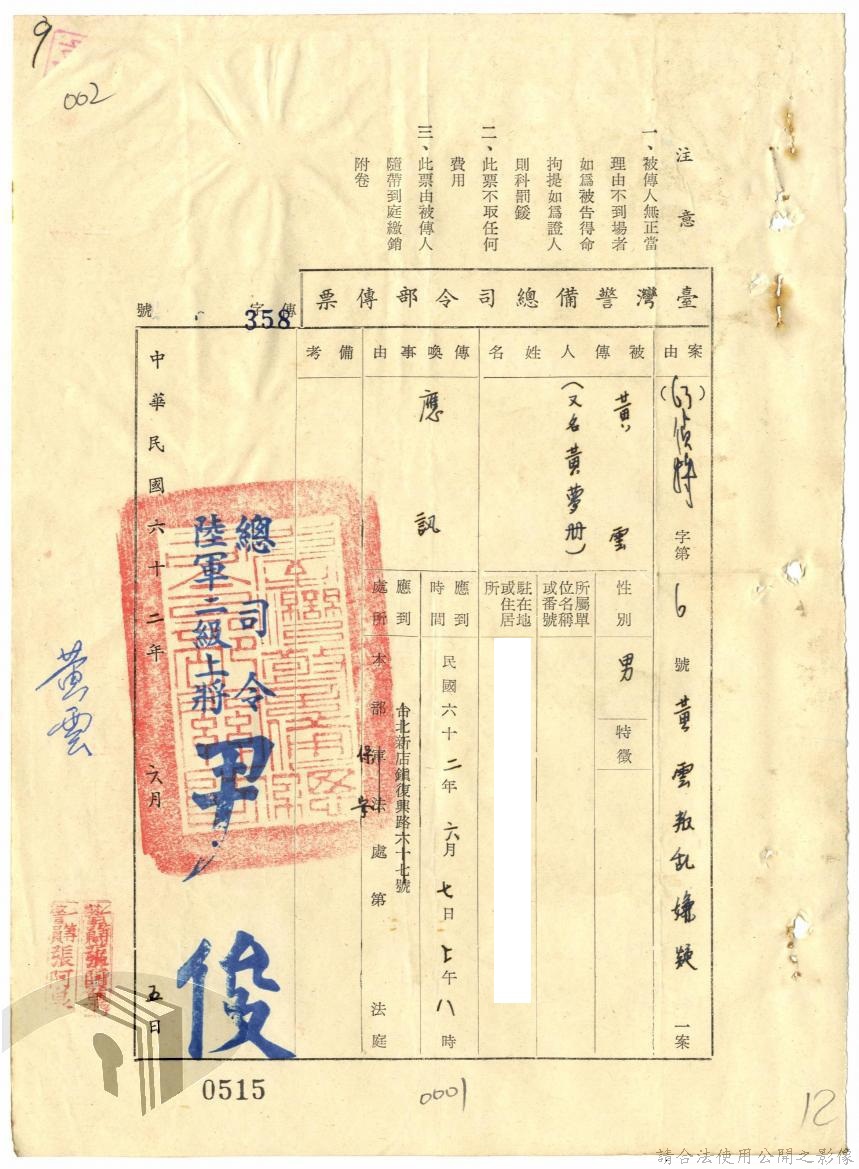 9
002
注意
一、被傳人無正當
理由不到場者
如爲被告得命
拘提如爲證人
則科罰鍰
二、此票不取任何
費用
三、此票由被傳人
隨帶到庭繳銷
附卷
臺灣警備總司令部傳票
傳字 358 號
案由
字第6號黃雲叛乱嫌疑一案
被傳人姓名
黃雲
(又名黃夢册)
性別
男
特徵
所屬單
位名稱
或番號
駐在地
或住居
所
傳喚事由
應訊
應到
時間
民國六十二年六月七日上午八時
應到
處所
台北新店鎮復興路六十七號
本部軍法處第法庭
保安
備考
總司令
陸軍二級上將
尹俊
中華民國六十二年六月五日
黃雲
0515
0001
12
請合法使用公開之影像